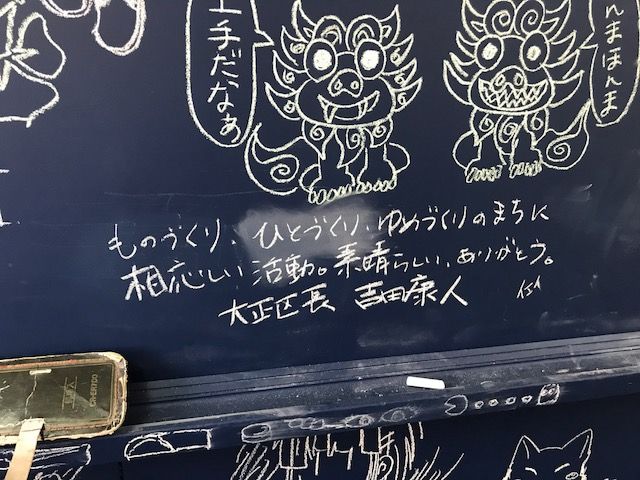 上手だなぁ
んまほんま
ものづくり、ひとづくり、ゆめづくりのまちに
相応しい活動。素晴らしい、ありがとう。
大正区長 吉田康人